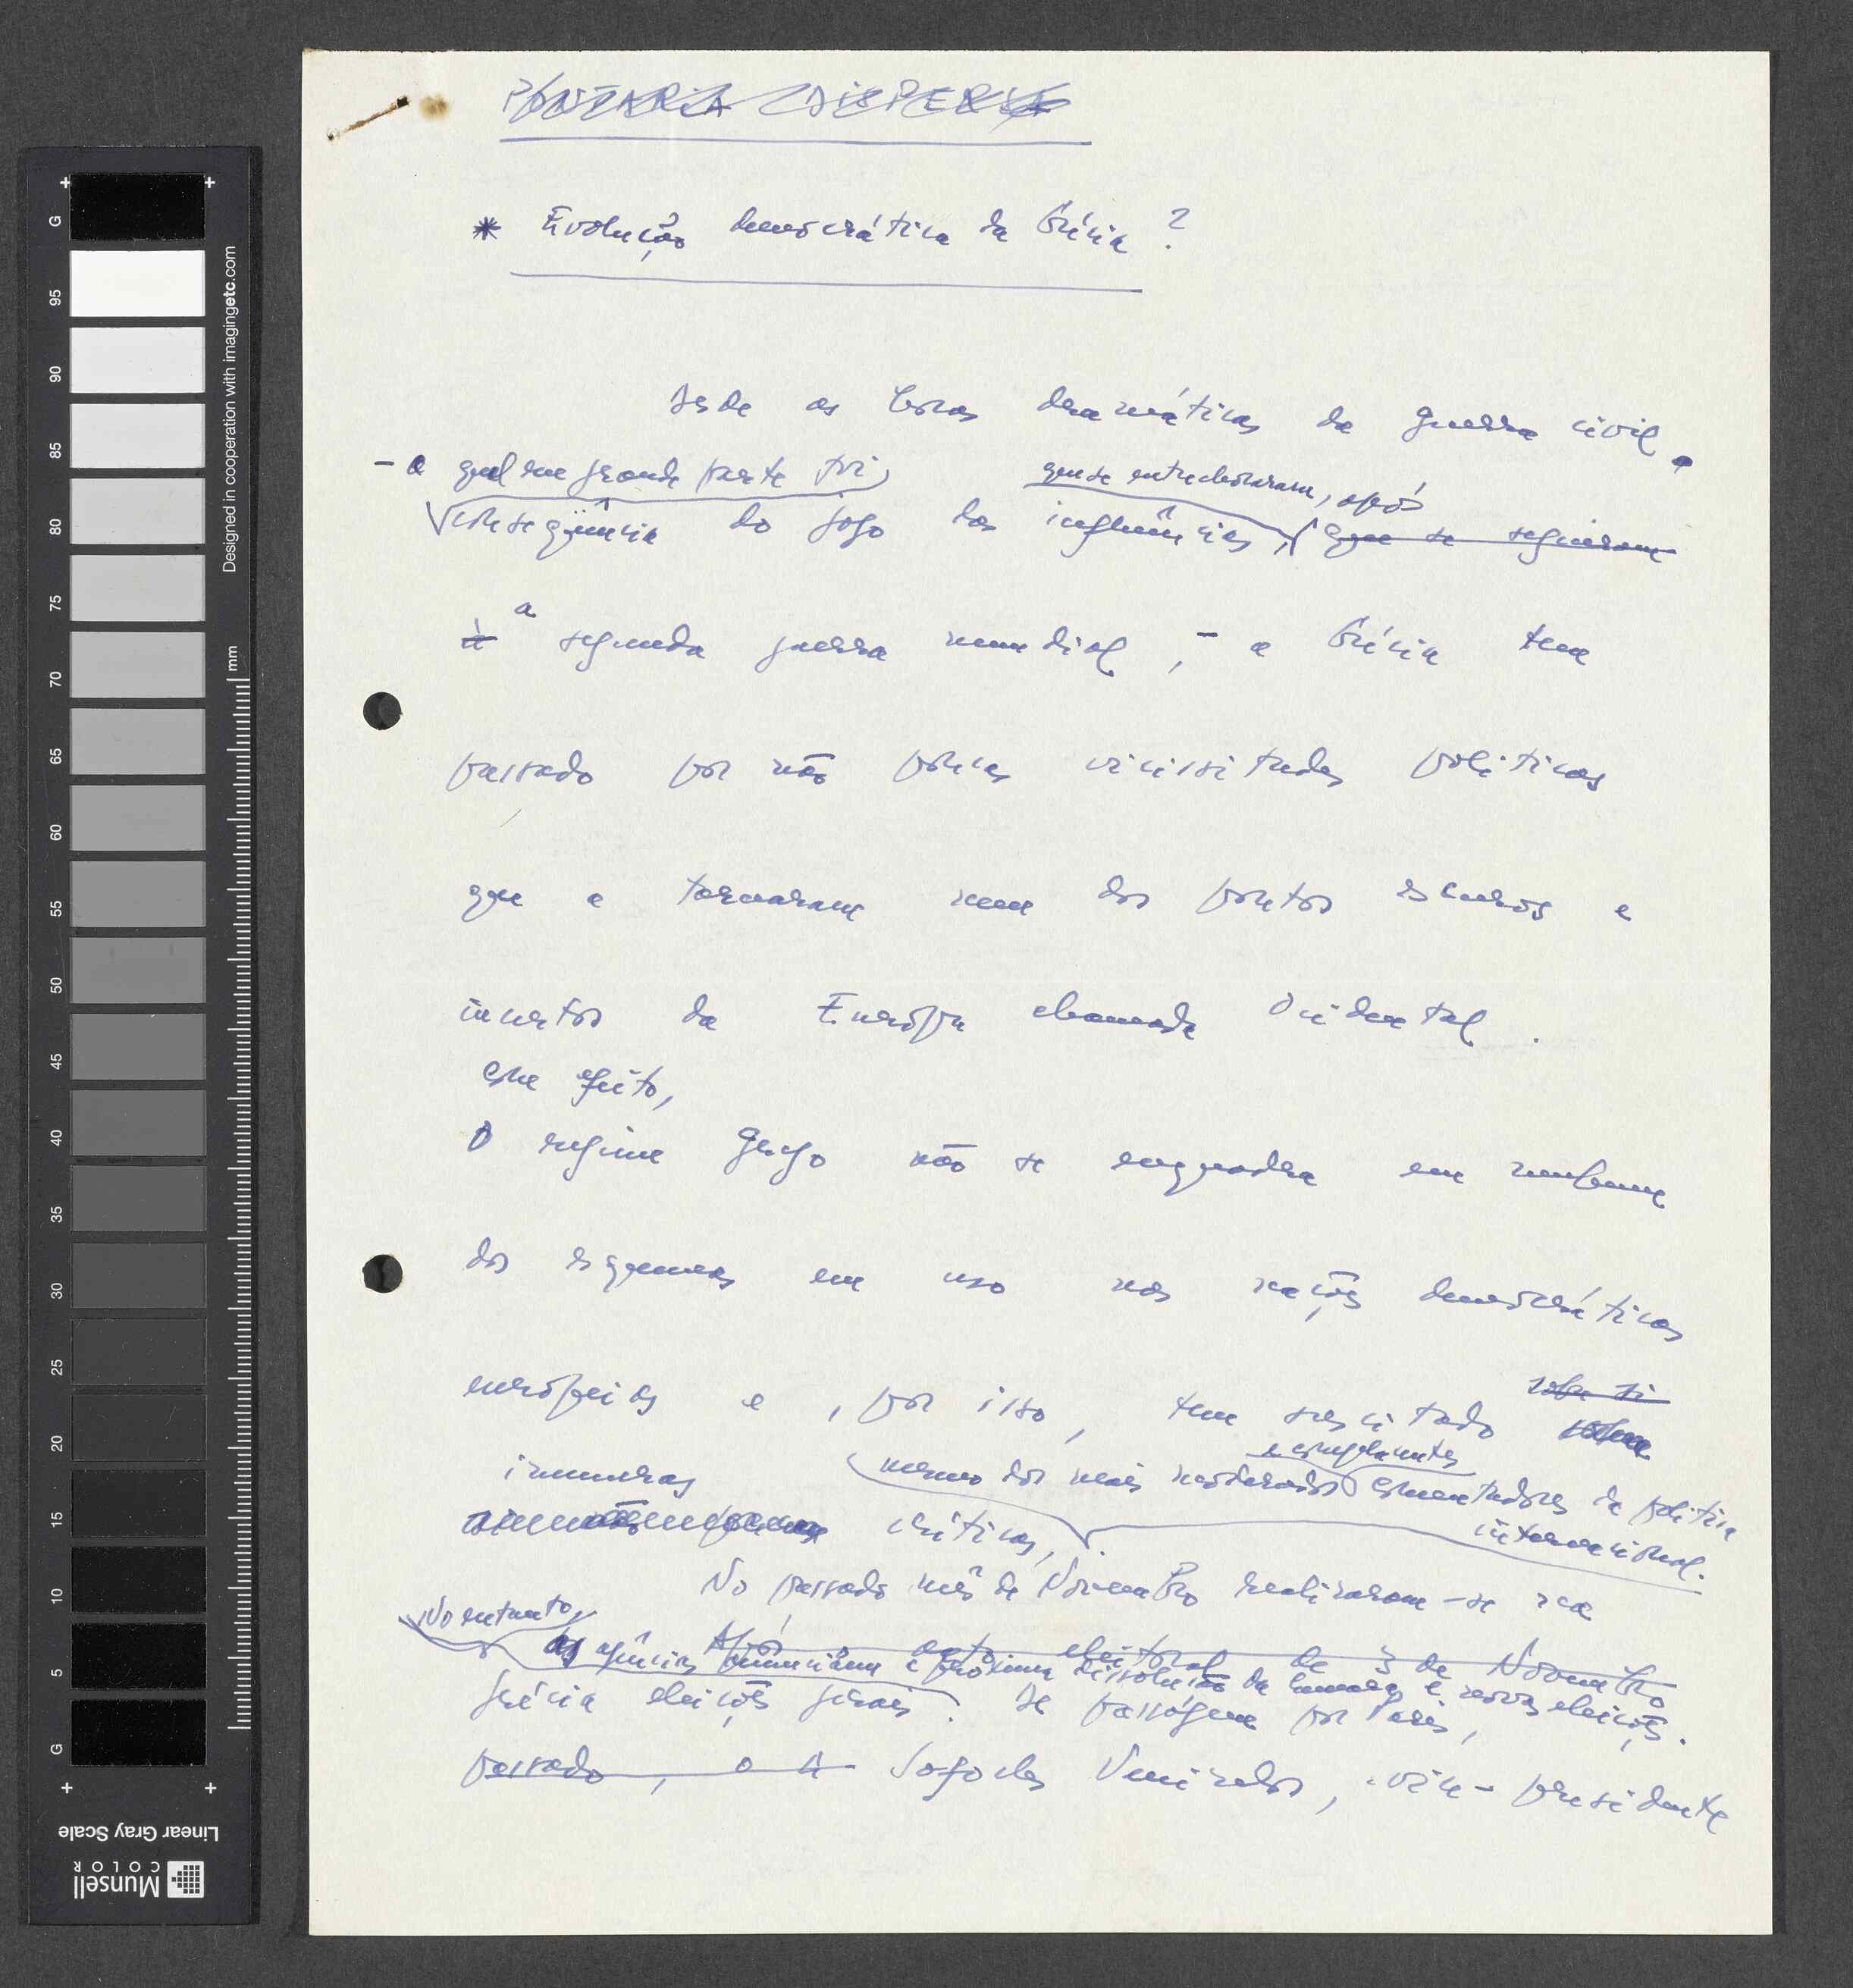 PONTARIA DISPERSA
* Evolução democrática da Grécia ?
Desde as horas dramáticas da guerra civil,
- a qual em grande parte foi
que se entrechocaram, após
consequência do jogo das influências, que se seguiram
à a segunda guerra mundial, - a Grécia tem
passado por não poucas vicissitudes políticas
que a tornaram num dos pontos escuros e
incertos da Europa chamada Ocidental.
Com efeito,
O regime grego não se enquadra em nenhum
dos esquemas em uso nas nações democráticas
europeias e, por isso, tem suscitado
e complacentes
inúmeras mesmo dos mais moderados comentadores da política
internacional.
críticas,
No passado mês de Novembro realizaram-se na
No entanto,
Após acto eleitoral de 3 de Novembro
as agências anunciam a próxima dissolução da Câmara e novas eleições.
Grécia eleições gerais. De passagem por Paris,
passado, o Sr Sofocles Venizelos, vice-presidente
G
95
90
85
80
75
70
65
60
55
50
45
40
35
30
25
20
15
10
5
G
mm
Designed in cooperation with imagingetc.com
Linear Gray Scale
Munsell
COLOR